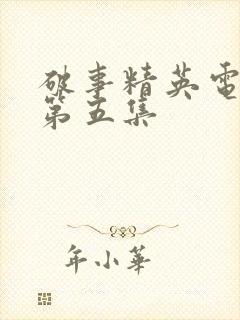 破事精英電
第五集
年小華